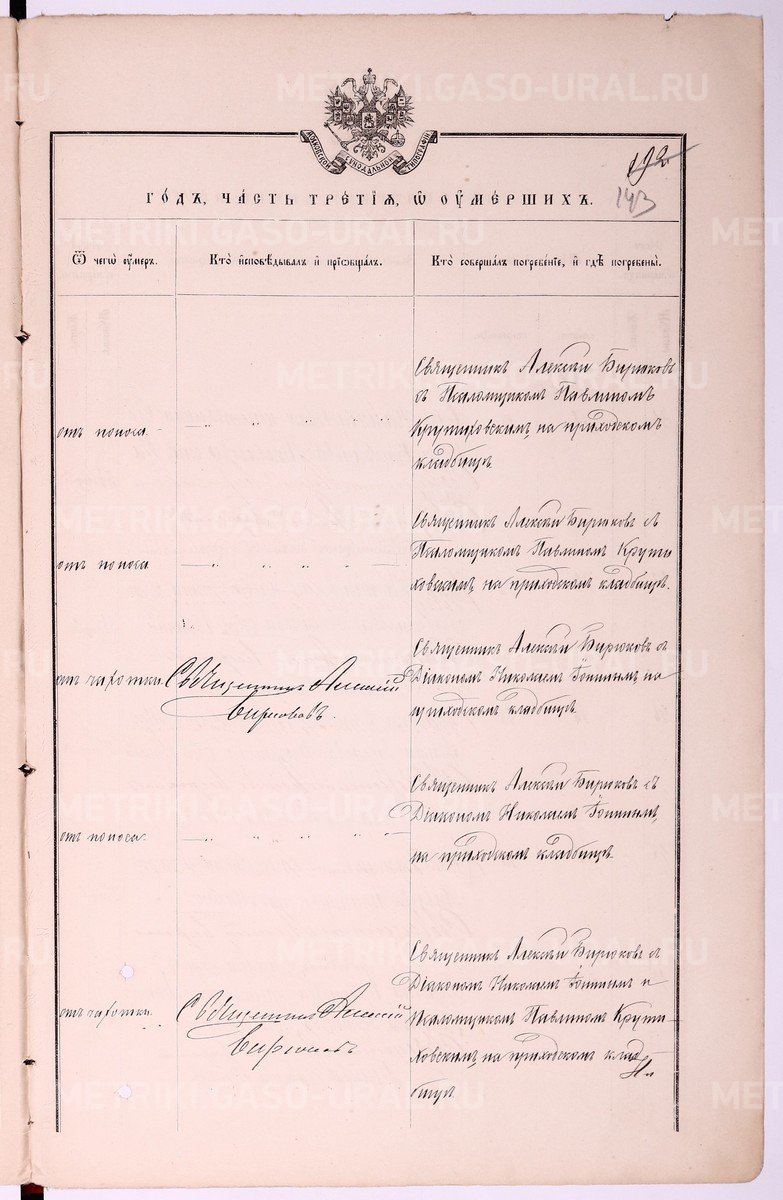 МОСКОВСКОЙ СѴНОДАЛЬНОЙ ТИПОГРАФІИ
192
143
ГО́ДЪ, ЧА́СТЬ ТРЕ́ТІѦ, Ѡ ОУ҆МЕ́РШИХЪ.
Ѿ чегѡ̀ ᲂу҆́меръ.
Кто̀ и҆сповѣ́дывалъ и҆ прїѡбща́лъ.
Кто̀ соверша́лъ погребе́нїе, и҆ гдѣ̀ погребены̀.
отъ поноса
Священникъ Алексѣй Бирюковъ
съ Псаломщикомъ Павлиномъ
Крутиховскимъ, на приходскомъ
кладбищѣ.
отъ поноса
Священникъ Алексѣй Бирюковъ съ
Псаломщикомъ Павлиномъ Крути
ховскимъ, на приходскомъ кладбищѣ.
отъ чахотки.
Священникъ Алексій
Бирюковъ.
Священникъ Алексѣй Бирюковъ съ
Діакономъ Николаемъ Гопинымъ на
приходскомъ кладбищѣ.
отъ поноса.
Священникъ Алексѣй Бирюковъ съ
Діакономъ Николаемъ Гопинымъ,
на приходскомъ кладбищѣ.
отъ чахотки.
Священникъ Алексій
Бирюковъ
Священникъ Алексѣй Бирюковъ съ
Діакономъ Николаемъ Гопинымъ и
Псаломщикомъ Павлиномъ Крути-
ховскимъ, на приходскомъ клад
бищѣ
METRIKI.GASO-URAL.RU